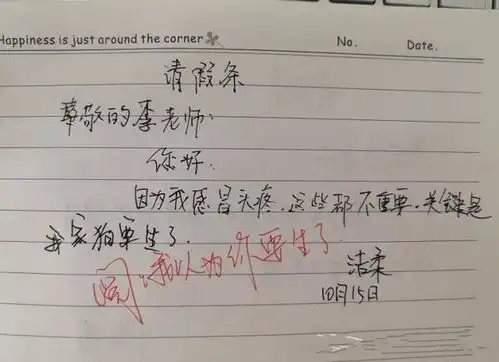 Happiness is just around the corner
No.
Date.
请假条
尊敬的李老师:
你好:
因为我感冒头疼,这些都不重要,关键是
我家狗要生了.
同,我以为你要生了
洁柔
10月15日